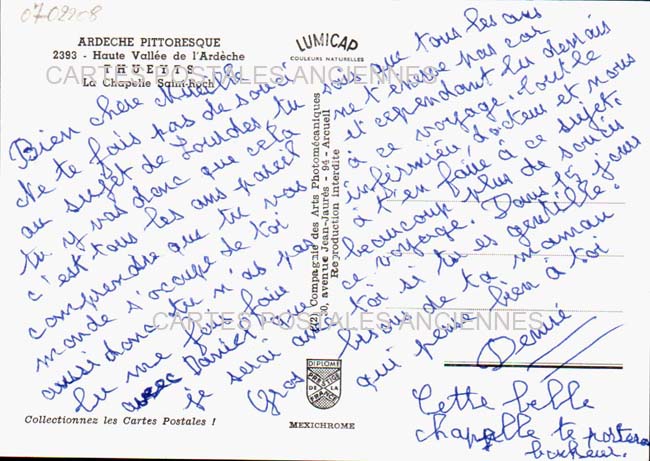 07-02208
ARDECHE PITTORESQUE
2393 - Haute Vallée de l'Ardèche
THUEYTS
La Chapelle Saint-Roch
LUMICAP
COULEURS NATURELLES
CARTES POSTALES ANCIENNES
Bien chère
Ne te fais pas de souci
au sujet de Lourdes, tu
tu y vas donc que cela
c'est tous les ans pareil
comprendre que tu vas
monde s'occupe de toi
aussi donc tu n'as pas
tu me feras faire
avec Daniel, que
je serai avec toi si tu es gentille.
Gros bisous de ta maman
qui pense bien à toi
sais que tous les ans
ne t'envie pas car
et cependant tu
à ce voyage tout le
infirmière, docteur et nous
à t'en faire à ce sujet.
beaucoup plus de soucis
ce voyage. Dans 15 jours
Denise
Cette belle
chapelle te portera
bonheur.
(2) Compagnie des Arts Photomécaniques
avenue Jean-Jaurès - 94 - Arcueil
Reproduction Interdite
CARTES POSTALES ANCIENNES
DIPLOME
PRESTIGE
DE LA
FRANCE
Collectionnez les Cartes Postales !
MEXICHROME